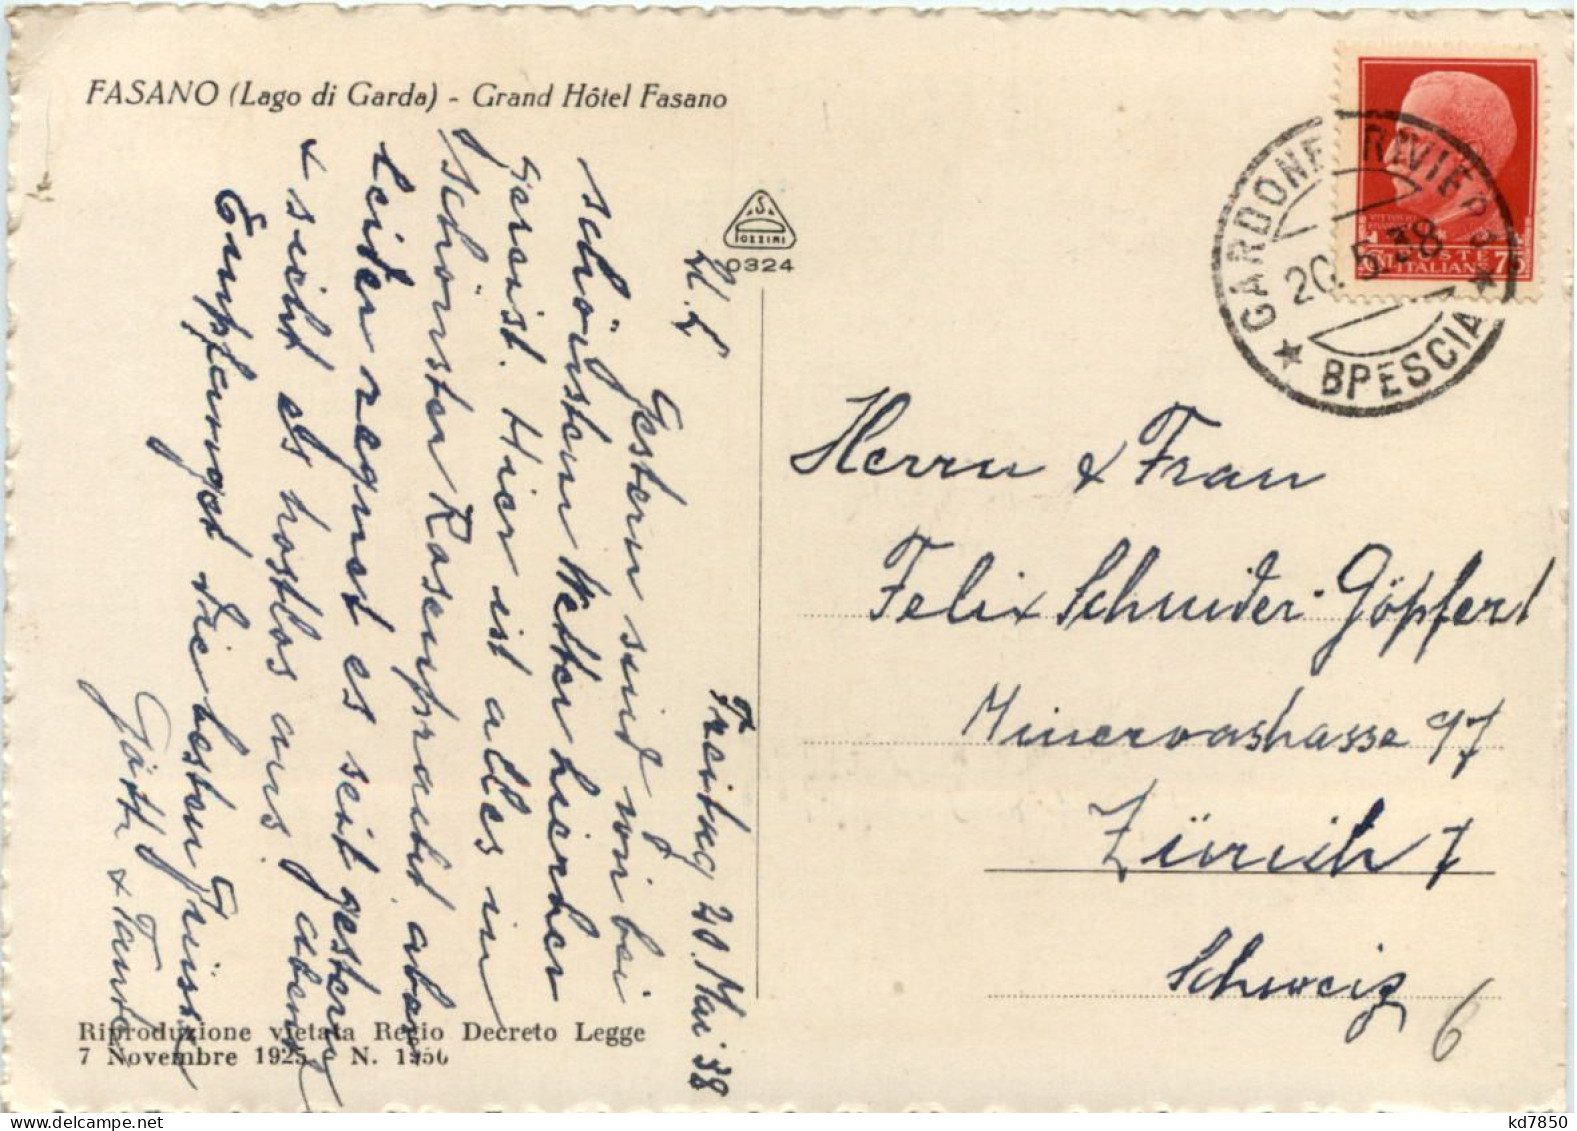 FASANO (Lago di Garda) - Grand Hôtel Fasano
S
POZZINI
0324
GARDONE RIVIERA
20.5.38
BRESCIA
POSTE
ITALIANE
75
Freitag 20. Mai 38
M. L.
Gestern sind wir bei
schönstem Wetter hierher
gereist. Hier ist alles in
schönster Rosenpracht aber
leider regnet es seit gestern abend
& sieht es trostlos aus.
Empfanget die besten Grüsse
Götti & Tante
Herrn & Frau
Felix Schneider-Göpfert
Minervastrasse 97
Zürich 7
Schweiz
6
Riproduzione vietata Regio Decreto Legge
7 Novembre 1925 N. 1950
kd7850